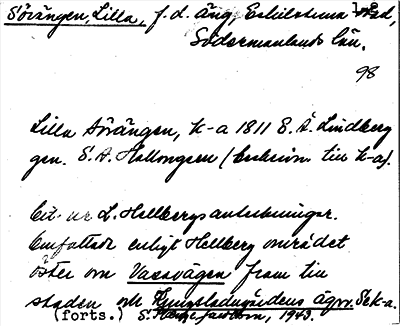 Sörängen, Lilla, f.d. äng, Eskilstuna stad,
Södermanlands län.
98
Lilla Sörängen, k-a 1811 E. Å. Lindberg
gen. S. A. Hallongren (beskrivn. till k-a).
Cit. ur L. Hellbergs anteckningar.
Omfattade enligt Hellberg området
öster om Vasavägen fram till
staden och Kungsladugårdens ägor. Se k-a.
(forts.) 1943.